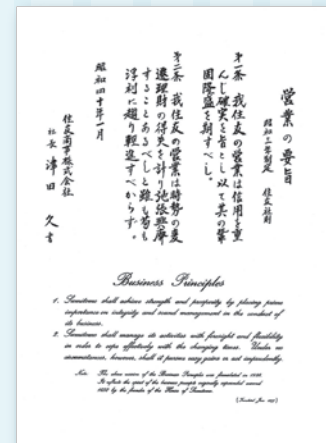 営業の要旨
昭和三年制定 住友社則
第一条 我住友の営業は信用を重
んじ確実を旨とし以て其の鞏
固隆盛を期すべし。
第二条 我住友の営業は時勢の変
遷理財の得失を計り弛張興廃
することあるべしと雖も苟も
浮利に趨り軽進すべからず。
昭和四十年一月
住友商事株式会社
社長 津田 久 書
Business Principles
1. Sumitomo shall achieve strength and prosperity by placing prime
importance on integrity and sound management in the conduct of
its business.
2. Sumitomo shall manage its activities with foresight and flexibility
in order to cope effectively with the changing times. Under no
circumstances, however, shall it pursue easy gains or act imprudently.
Note: The above version of the Business Principles was formulated in 1928.
It reflects the spirit of the business precepts originally expounded around
1650 by the founder of the House of Sumitomo.